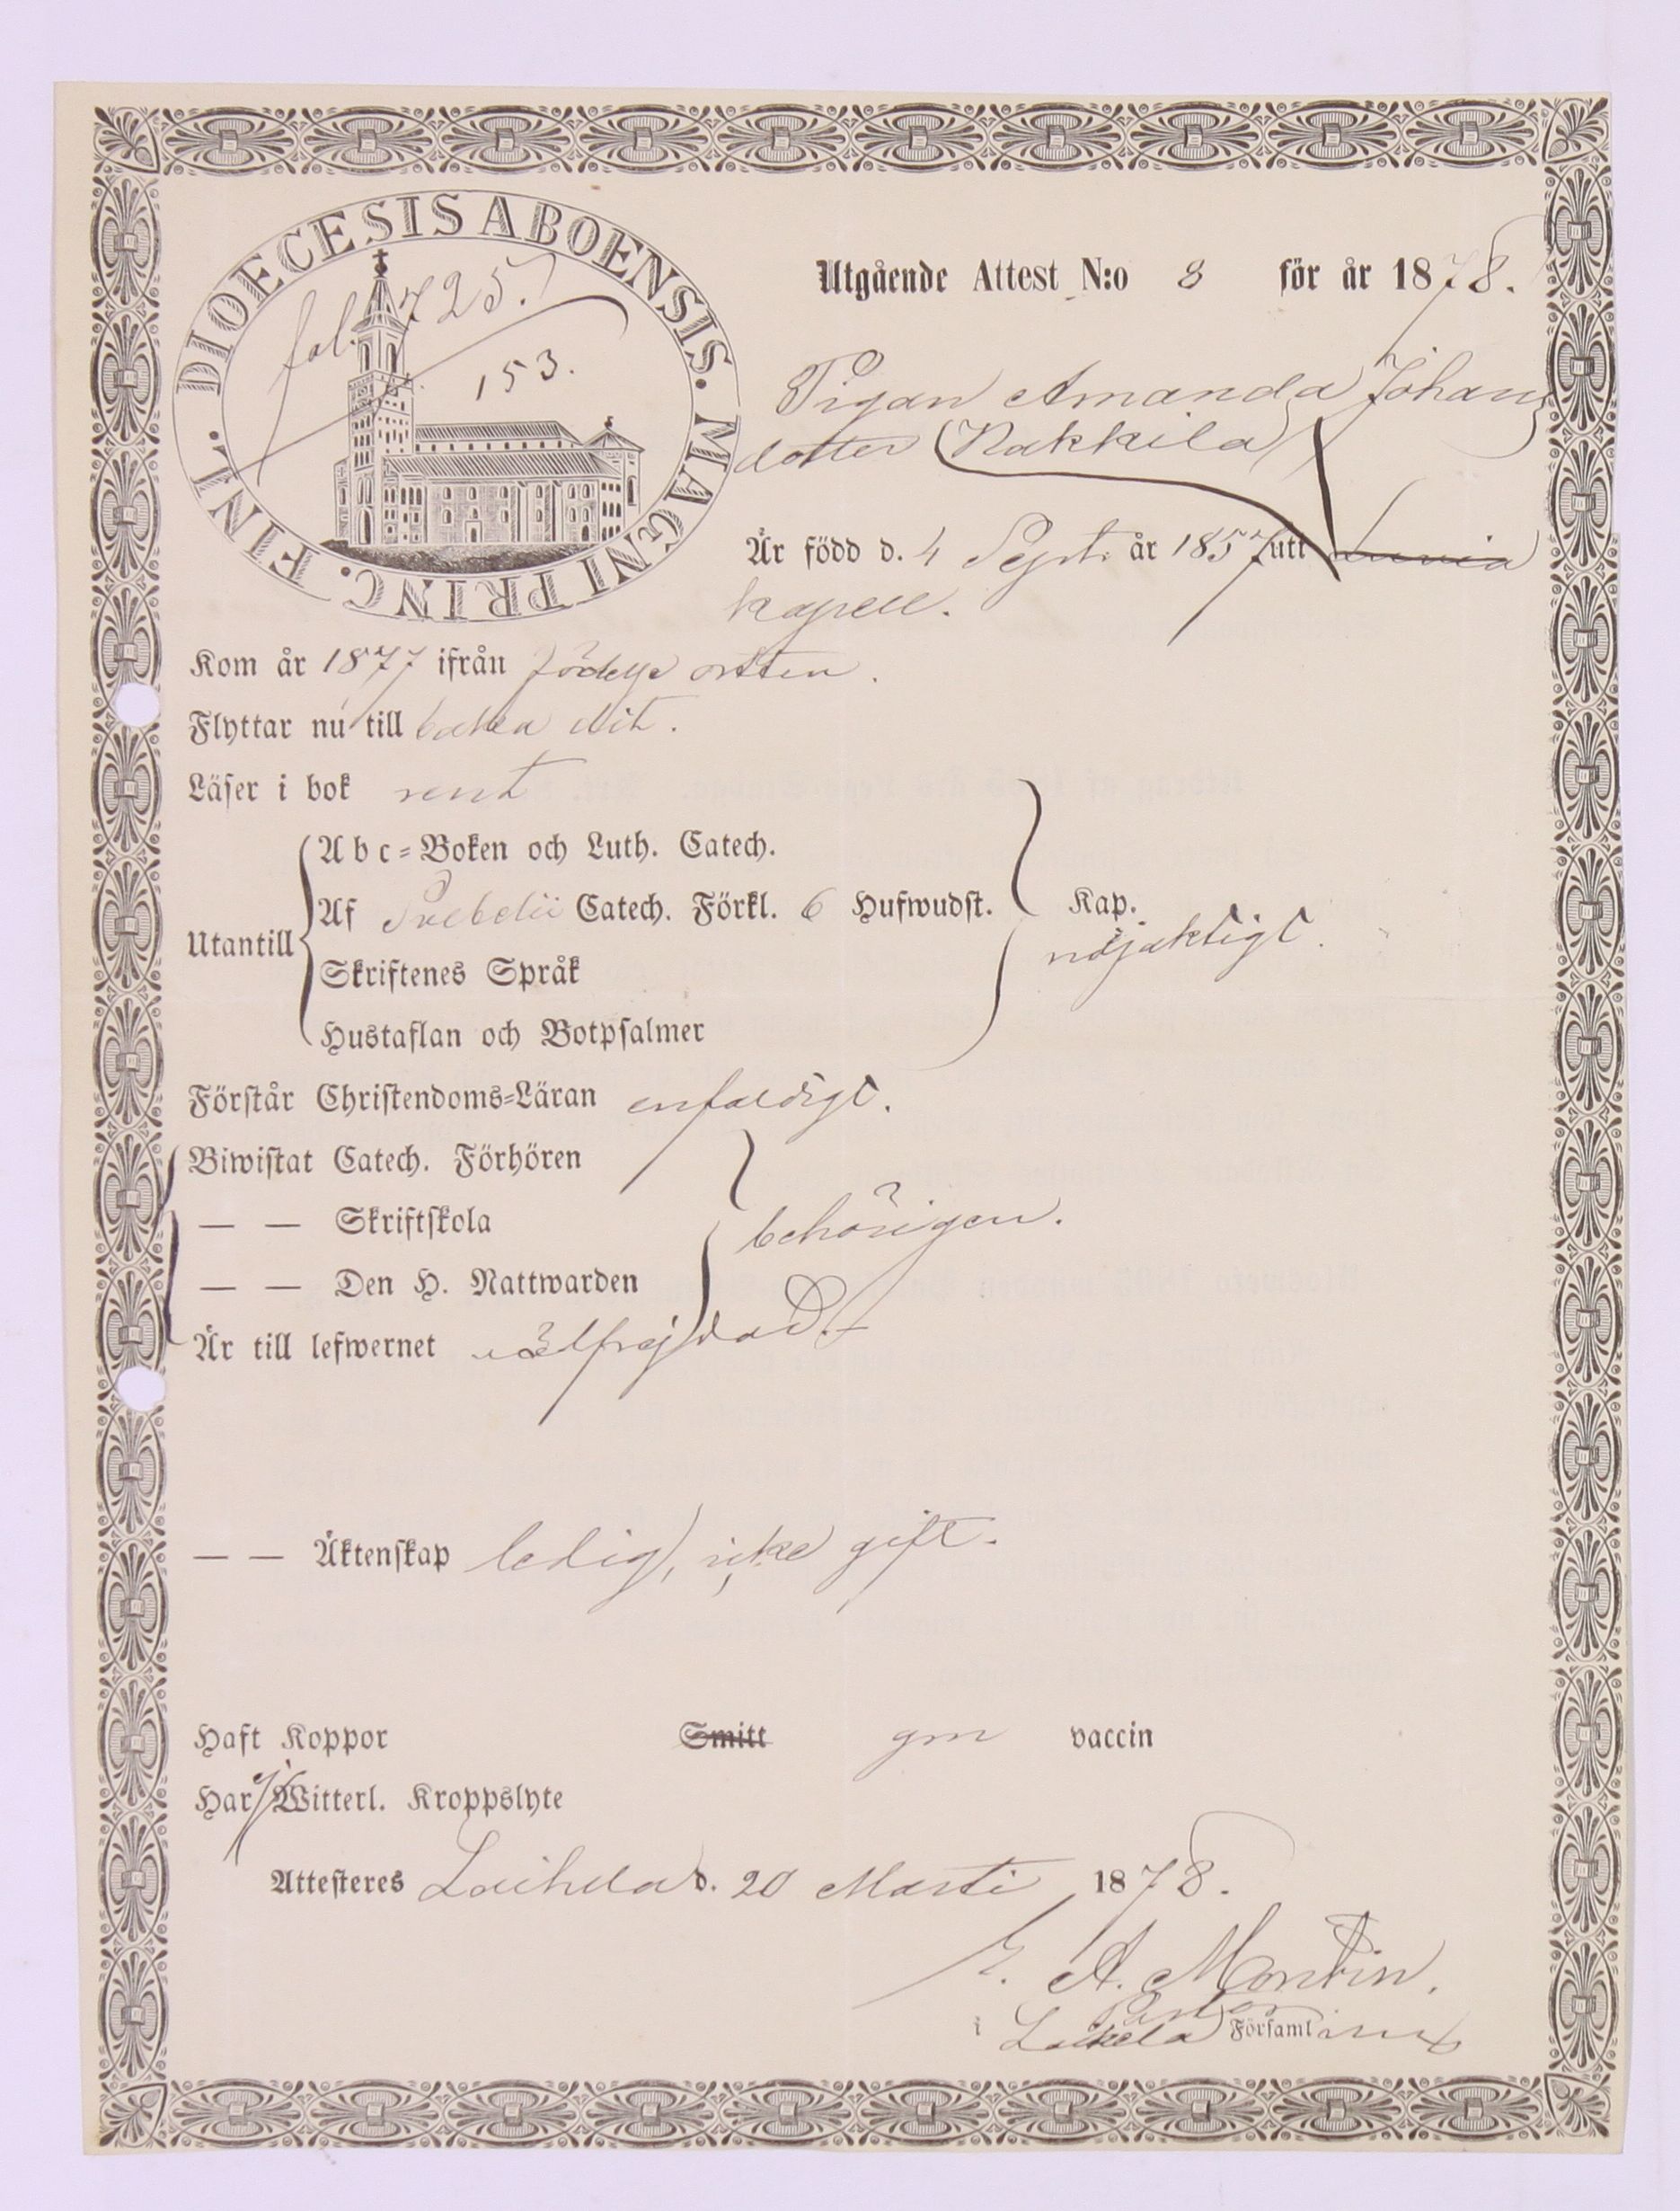 DIOECESIS ABOENSIS. MAGNI PRINC. FINL.
fol. 725.
153.
Utgående Attest N:o 8 för år 1878.
Pigan Amanda Johans
dotter (Nakkila)
Är född d. 4 Sept. år 1857 utt Luvia
kapell.
Kom år 1877 ifrån födelse orten.
Flyttar nu till baka dit.
Läser i bok rent
Abc-Boken och Luth. Catech.
Af Svebelii Catech. Förkl. 6 Hufwudst. Kap.
nöjaktigt.
Utantill
Skriftenes Språk
Hustaflan och Botpsalmer
Förstår Christendoms-Läran enfaldigt.
Biwistat Catech. Förhören
— — Skriftskola behörigen.
— — Den H. Nattwarden
Är till lefwernet välfrejdad.
— — Äktenskap ledig, icke gift.
Haft Koppor Smitt gm vaccin
Har ej Witterl. Kroppslyte
Attesteres Laihela d. 20 Marti 1878.
E. A. Montin.
i Laihela Församling